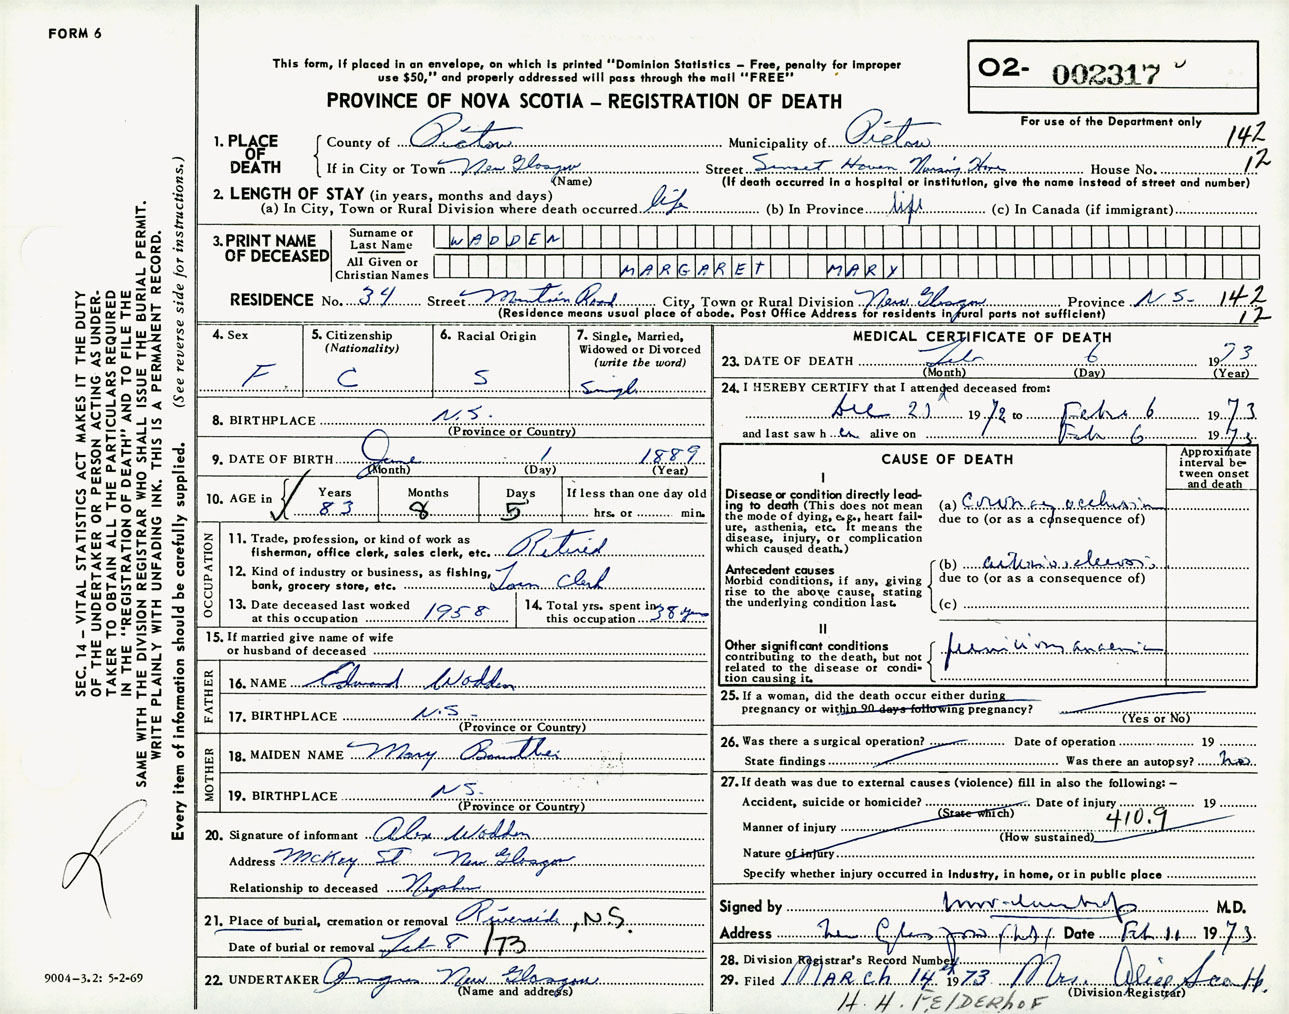 FORM 6
This form, if placed in an envelope, on which is printed "Dominion Statistics – Free, penalty for improper
use $50," and properly addressed will pass through the mail "FREE"
PROVINCE OF NOVA SCOTIA – REGISTRATION OF DEATH
O2- 002317
For use of the Department only
1. PLACE OF DEATH County of Pictou Municipality of Pictou 142
If in City or Town New Glasgow Street Sunset Haven Nursing Home House No. 12
(Name) (If death occurred in a hospital or institution, give the name instead of street and number)
2. LENGTH OF STAY (in years, months and days)
(a) In City, Town or Rural Division where death occurred life (b) In Province life (c) In Canada (if immigrant)
3. PRINT NAME OF DECEASED Surname or Last Name WADDEN
All Given or Christian Names MARGARET MARY
RESIDENCE No. 34 Street Mountain Road City, Town or Rural Division New Glasgow Province N.S. 142
(Residence means usual place of abode. Post Office Address for residents in rural parts not sufficient) 12
4. Sex F
5. Citizenship (Nationality) C
6. Racial Origin S
7. Single, Married, Widowed or Divorced (write the word) Single
8. BIRTHPLACE N.S.
(Province or Country)
9. DATE OF BIRTH June 1 1889
(Month) (Day) (Year)
10. AGE in Years 83 Months 8 Days 5 If less than one day old
hrs. or min.
OCCUPATION
11. Trade, profession, or kind of work as
fisherman, office clerk, sales clerk, etc. Retired
12. Kind of industry or business, as fishing,
bank, grocery store, etc. Town Clerk
13. Date deceased last worked
at this occupation 1958
14. Total yrs. spent in
this occupation 38 years
15. If married give name of wife
or husband of deceased
FATHER
16. NAME Edward Wadden
17. BIRTHPLACE N.S.
(Province or Country)
MOTHER
18. MAIDEN NAME Mary
19. BIRTHPLACE N.S.
(Province or Country)
20. Signature of informant Alex Wadden
Address McKay St New Glasgow
Relationship to deceased Nephew
21. Place of burial, cremation or removal Riverside, N.S.
Date of burial or removal Feb 8 /73
22. UNDERTAKER Angus New Glasgow
(Name and address)
MEDICAL CERTIFICATE OF DEATH
23. DATE OF DEATH Feb 6 1973
(Month) (Day) (Year)
24. I HEREBY CERTIFY that I attended deceased from:
Dec 21 1972 to Feb 6 1973
and last saw her alive on Feb 6 1973
CAUSE OF DEATH
Approximate interval between onset and death
I
Disease or condition directly leading to death (This does not mean
the mode of dying, e.g., heart failure, asthenia, etc. It means the
disease, injury, or complication
which caused death.)
(a) coronary occlusion
due to (or as a consequence of)
Antecedent causes
Morbid conditions, if any, giving
rise to the above cause, stating
the underlying condition last.
(b) arteriosclerosis
due to (or as a consequence of)
(c)
II
Other significant conditions
contributing to the death, but not
related to the disease or condition causing it.
pernicious anaemia
25. If a woman, did the death occur either during
pregnancy or within 90 days following pregnancy?
(Yes or No)
26. Was there a surgical operation? Date of operation 19
State findings Was there an autopsy? no
27. If death was due to external causes (violence) fill in also the following: –
Accident, suicide or homicide? Date of injury 19
(State which) 410.9
Manner of injury
(How sustained)
Nature of injury
Specify whether injury occurred in Industry, in home, or in public place
Signed by M.D.
Address New Glasgow N.S. Date Feb 11 1973
28. Division Registrar's Record Number
29. Filed MARCH 14th 1973 Mrs. Alice Scott
(Division Registrar)
H. H. FELDERHOF
SEC. 14 – VITAL STATISTICS ACT MAKES IT THE DUTY
OF THE UNDERTAKER OR PERSON ACTING AS UNDER-
TAKER TO OBTAIN ALL THE PARTICULARS REQUIRED
IN THE "REGISTRATION OF DEATH" AND TO FILE THE
SAME WITH THE DIVISION REGISTRAR WHO SHALL ISSUE THE BURIAL PERMIT.
WRITE PLAINLY WITH UNFADING INK. THIS IS A PERMANENT RECORD.
Every item of information should be carefully supplied. (See reverse side for instructions.)
9004-3.2: 5-2-69